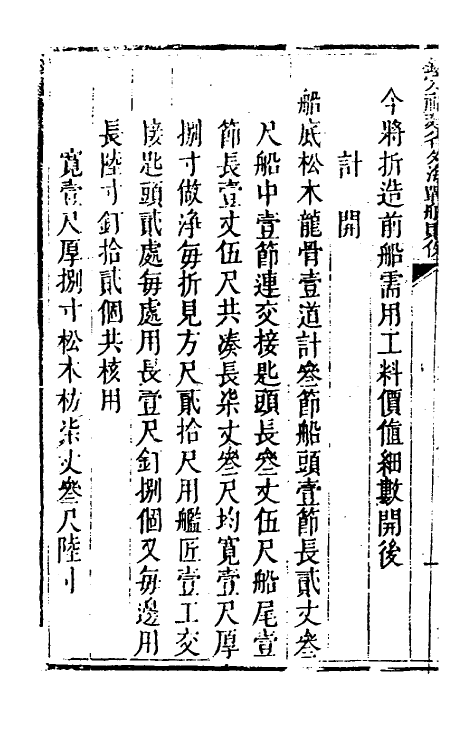 今將折造前船需用工料價值細數開後
計開
船底松木龍骨壹道計叄節船頭壹節長貳丈叄
尺船中壹節連交接匙頭長叄丈伍尺船尾壹
節長壹丈伍尺共凑長柒丈叄尺均寬壹尺厚
捌寸做净每折見方尺貳拾尺用艦匠壹工交
接匙頭貳處每處用長壹尺釘捌個又每邊用
長陸寸釘拾貳個共核用
寬壹尺厚捌寸松木枋柒丈叄尺陸寸